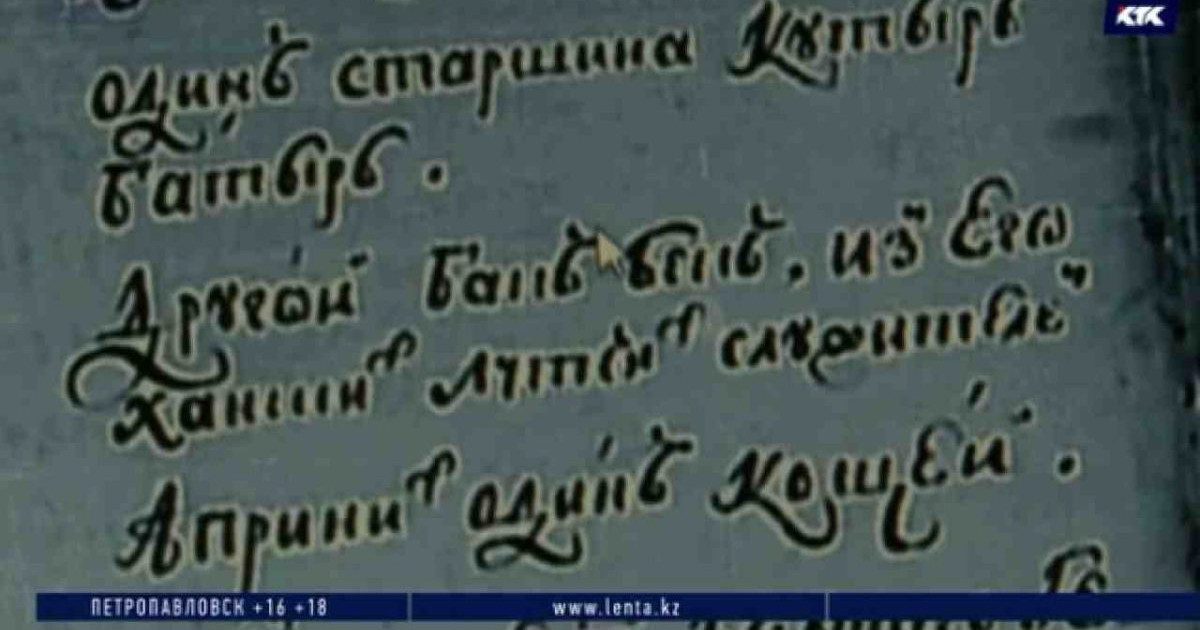 КТК
одинъ старшина Кꙋтырь
батырь.
Дрꙋгѡй из̾ Егѡ
ханшихъ лутчихъ слꙋжителей
Априних одинъ кощей.
ПЕТРОПАВЛОВСК +16 +18 www.lenta.kz